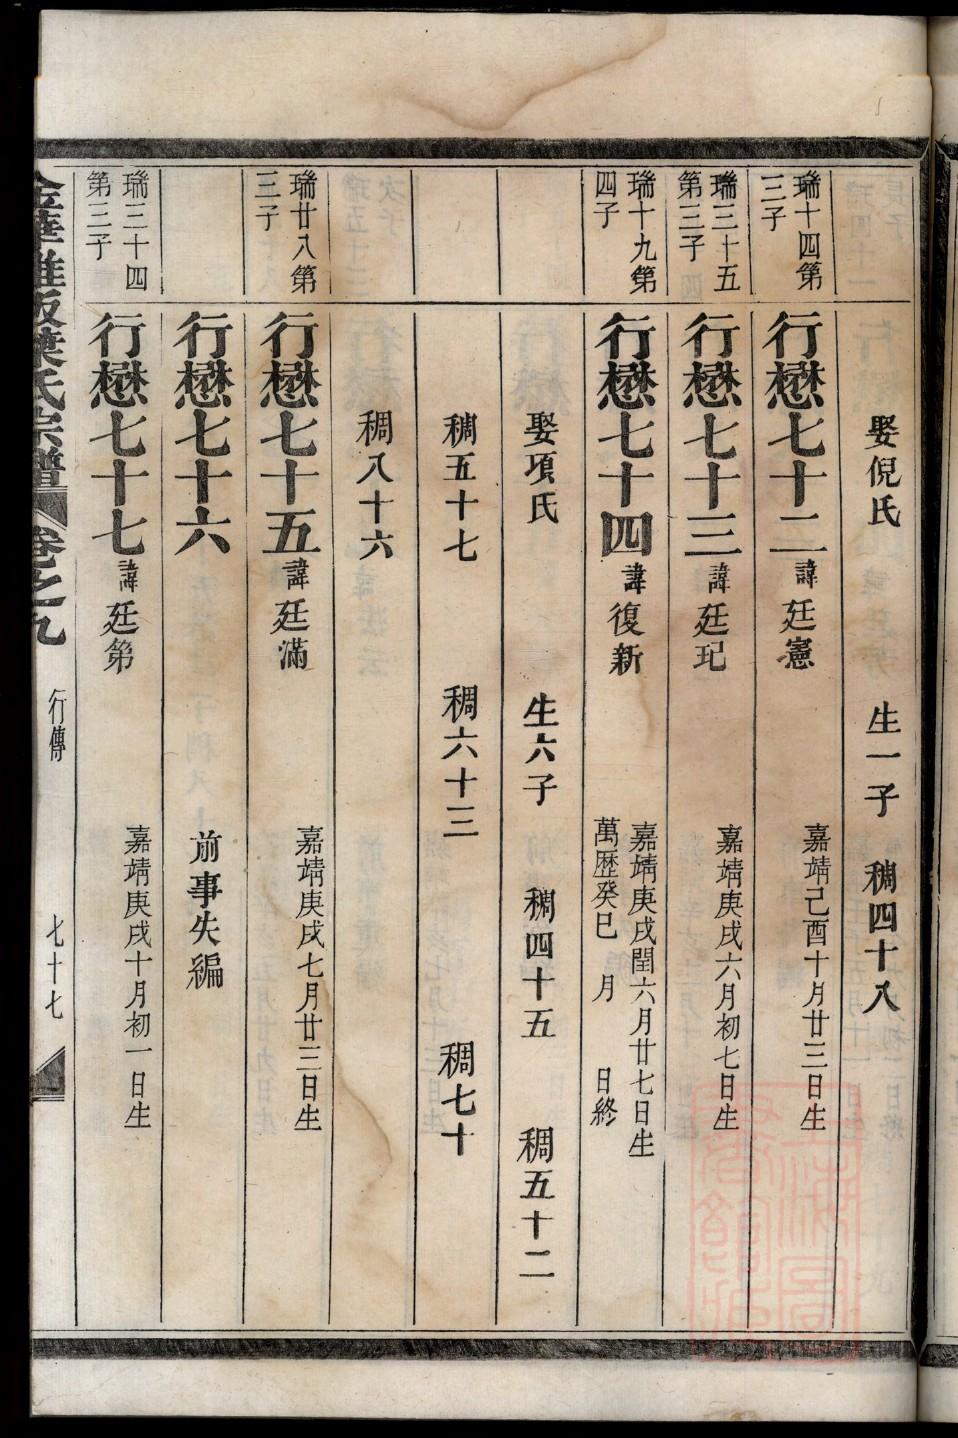 娶倪氏 生一子 稠四十八
瑞十四第三子 行懋七十二 諱廷憲 嘉靖己酉十月廿三日生
瑞三十五第三子 行懋七十三 諱廷玘 嘉靖庚戌六月初七日生
瑞十九第四子 行懋七十四 諱復新 嘉靖庚戌閏六月廿七日生 萬歷癸巳 月 日終
娶項氏 生六子 稠四十五 稠五十二
稠五十七 稠六十三 稠七十
稠八十六
瑞廿八第三子 行懋七十五 諱廷滿 嘉靖庚戌七月廿三日生
行懋七十六 前事失編
瑞三十四第三子 行懋七十七 諱廷第 嘉靖庚戌十月初一日生
氏宗譜 卷之九 行傳 七十七